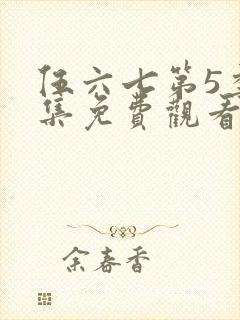 伍六七第5季
集免費觀看
余春香